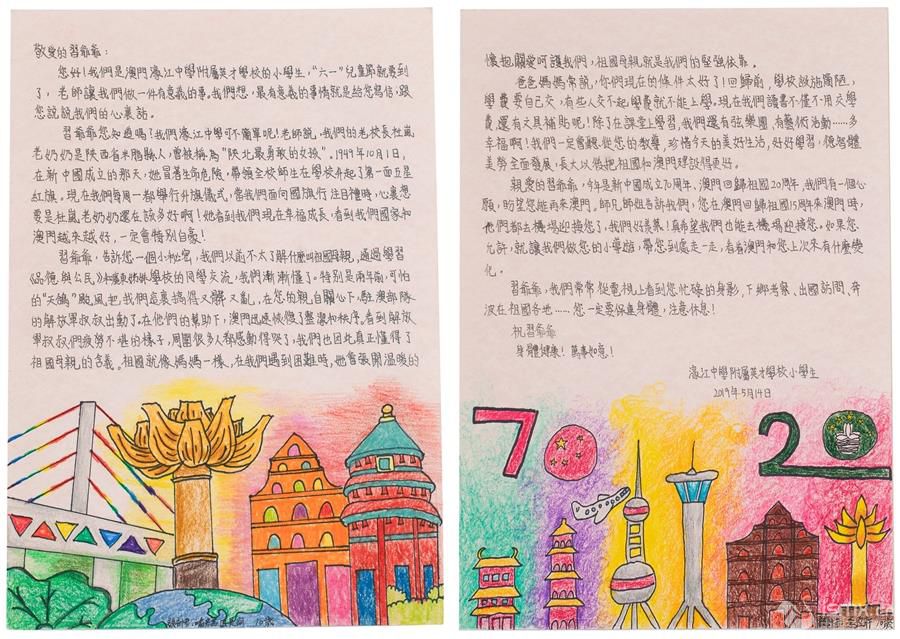 敬愛的習爺爺：
您好！我們是澳門濠江中學附屬英才學校的小學生，“六一”兒童節就要到
了，老師讓我們做一件有意義的事。我們想，最有意義的事情就是給您寫信，跟
您說說我們的心裏話。
習爺爺您知道嗎！我們濠江中學可不簡單呢！老師說，我們的老校長杜嵐
老奶奶是陝西省米脂縣人，曾被稱為“陝北最勇敢的女孩”。1949年10月1日，
在新中國成立的那天，她冒著生命危險，帶領全校師生在學校升起了第一面五星
紅旗。現在我們每周一都舉行升旗儀式，當我們面向國旗行注目禮時，心裏想
要是杜嵐老奶奶還在該多好啊！她看到我們現在幸福成長，看到我們國家和
澳門越來越好，一定會特別自豪！
習爺爺，告訴您一個小秘密，我們以前不太了解什麼叫祖國母親，通過學習
《品德與公民》和學校的同學交流，我們漸漸懂了。特別是兩年前，可怕
的“天鴿”颱風把我們這裏搞得又髒又亂，在您的親自關心下，駐澳部隊
的解放軍叔叔出動了。在他們的幫助下，澳門迅速恢復了整潔和秩序。看到解放
軍叔叔們疲勞不堪的樣子，周圍很多人都感動得哭了，我們也因此真正懂得了
祖國母親的含義。祖國就像媽媽一樣，在我們遇到困難時，她會張開溫暖的
懷抱，關愛呵護我們，祖國母親就是我們的堅強依靠。
爸爸媽媽常說，你們現在的條件太好了！回歸前，學校設施簡陋，
學費要自己交，有些人交不起學費就不能上學。現在我們讀書不僅不用交學
費，還有文具補貼呢！除了在課堂上學習，我們還有弦樂團，有藝術活動……多
幸福啊！我們一定會聽從您的教導，珍惜今天的美好生活，好好學習，德智體
美勞全面發展，長大以後把祖國和澳門建設得更好。
親愛的習爺爺，今年是新中國成立70周年、澳門回歸祖國20周年，我們有一個心
願，盼望您能再來澳門。師兄師姐告訴我們，您在澳門回歸祖國15周年來澳門時，
他們都去機場迎接您了，我們好羨慕！真希望我們也能去機場迎接您。如果您
允許，就讓我們做您的小導遊，帶您到處走一走，看看澳門和您上次來有什麼變
化。
習爺爺，我們常常從電視上看到您忙碌的身影，下鄉考察、出國訪問、奔
波在祖國各地……您一定要保重身體，注意休息！
祝習爺爺
身體健康！萬事如意！
濠江中學附屬英才學校小學生
2019年5月14日
70
20